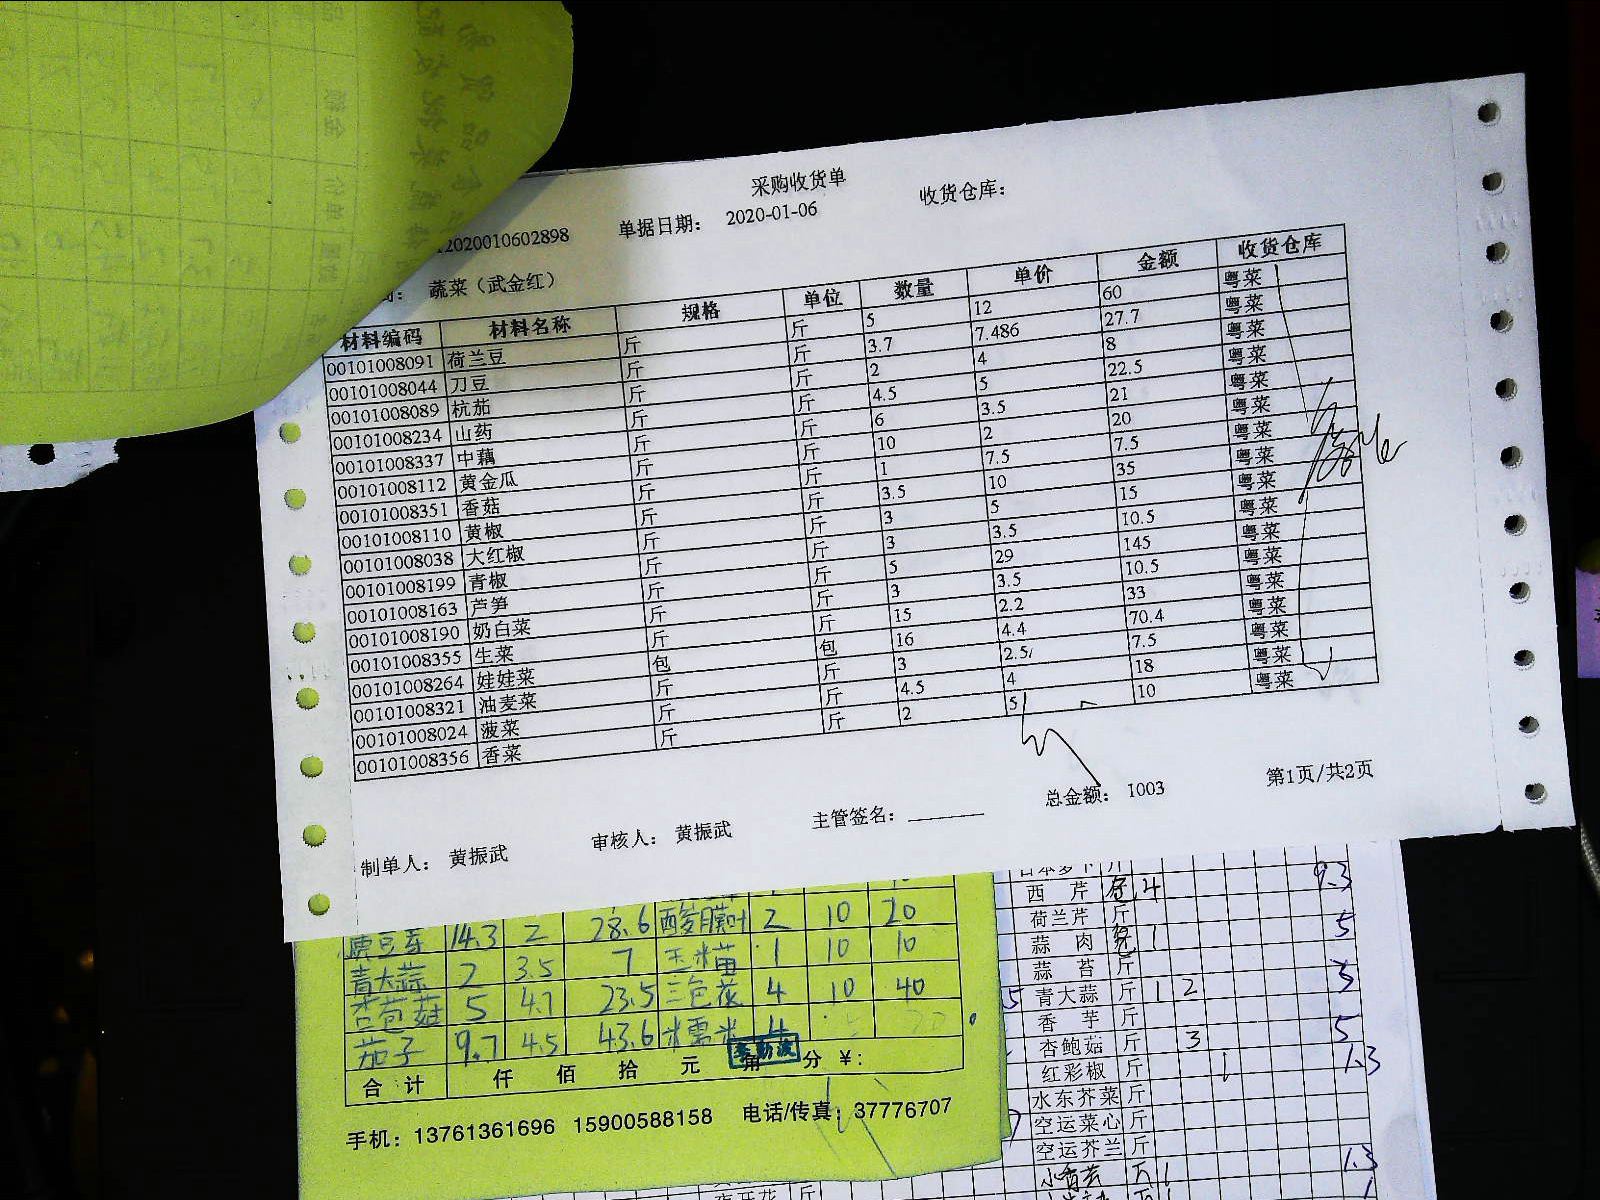 采购收货单
12020010602898 单据日期: 2020-01-06 收货仓库:
蔬菜（武金红）
材料编码 材料名称 规格 单位 数量 单价 金额 收货仓库
00101008091 荷兰豆 斤 斤 5 12 60 粤菜
00101008044 刀豆 斤 斤 3.7 7.486 27.7 粤菜
00101008089 杭茄 斤 斤 2 4 8 粤菜
00101008234 山药 斤 斤 4.5 5 22.5 粤菜
00101008337 中藕 斤 斤 6 3.5 21 粤菜
00101008112 黄金瓜 斤 斤 10 2 20 粤菜
00101008351 香菇 斤 斤 1 7.5 7.5 粤菜
00101008110 黄椒 斤 斤 3.5 10 35 粤菜
00101008038 大红椒 斤 斤 3 5 15 粤菜
00101008199 青椒 斤 斤 3 3.5 10.5 粤菜
00101008163 芦笋 斤 斤 5 29 145 粤菜
00101008190 奶白菜 斤 斤 3 3.5 10.5 粤菜
00101008355 生菜 斤 斤 15 2.2 33 粤菜
00101008264 娃娃菜 包 包 16 4.4 70.4 粤菜
00101008321 油麦菜 斤 斤 3 2.5 7.5 粤菜
00101008024 菠菜 斤 斤 4.5 4 18 粤菜
00101008356 香菜 斤 斤 2 5 10 粤菜
总金额: 1003 第1页/共2页
制单人: 黄振武 审核人: 黄振武 主管签名:
14.3 2 28.6 2 10 20
青大蒜 2 3.5 7 玉米苗 1 10 10
5 4.7 23.5 三色花 4 10 40
茄子 9.7 4.5 43.6 糯米 4
合计 仟 佰 拾 元 角 分 ¥:
手机: 13761361696 15900588158 电话/传真: 37776707
西芹 4 9.3
荷兰芹 斤
蒜肉 1 5
蒜苔 斤
青大蒜 斤 1 2 3
香芋 斤
杏鲍菇 斤 3 5
红彩椒 斤 1 1.3
水东芥菜 斤
空运菜心 斤
空运芥兰 斤
1.3